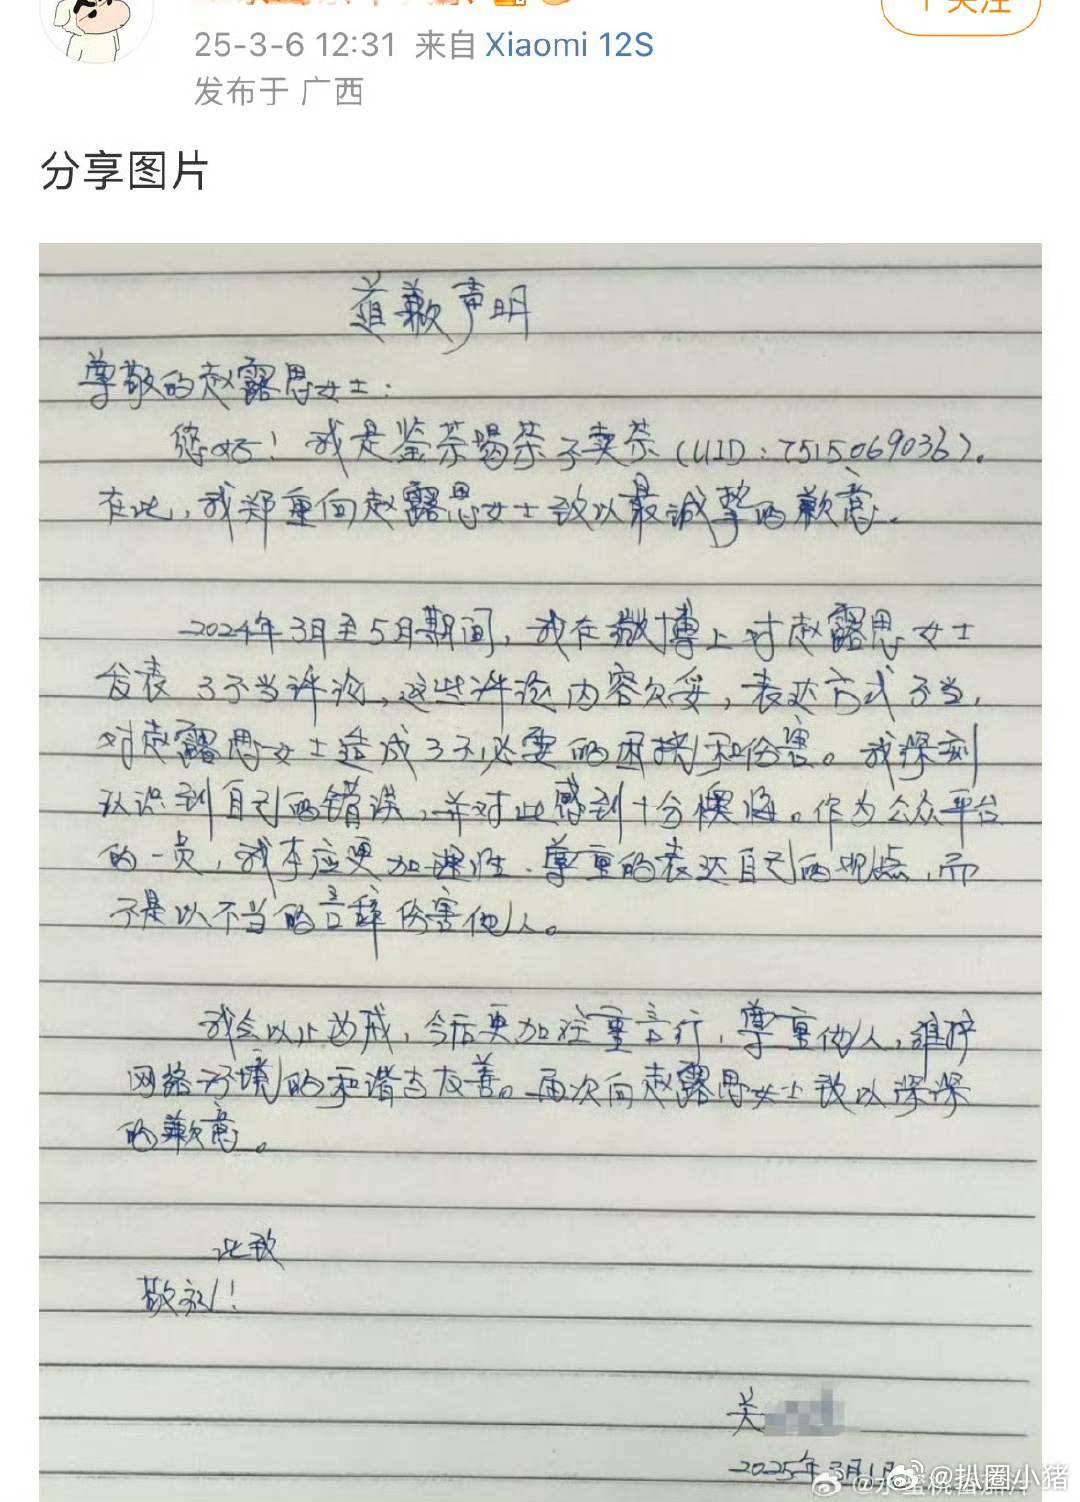 25-3-6 12:31 来自 Xiaomi 12S
发布于 广西
十关注
分享图片
道歉声明
尊敬的赵露思女士：
您好！我是鉴茶喝茶子卖茶（UID：7515069036）。
在此，我郑重向赵露思女士致以最诚挚的歉意。
2024年3月至5月期间，我在微博上对赵露思女士
发表了不当评论，这些评论内容欠妥，表达方式不当，
对赵露思女士造成了不必要的困扰和伤害。我深刻
认识到自己的错误，并对此感到十分懊悔。作为公众平台
的一员，我本应更加理性、尊重的表达自己的观点，而
不是以不当的言辞伤害他人。
我会以此为戒，今后更加注重言行，尊重他人，维护
网络环境的和谐与友善。再次向赵露思女士致以深深
的歉意。
此致
敬礼！
关
2025年3月1日
@扒圈小猪